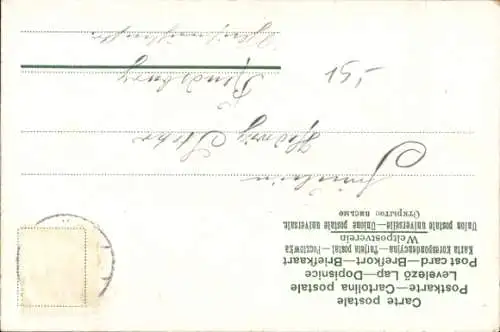 Carte postale
Postkarte—Cartolina postale
Levelező Lap—Dopisnice
Post card—Brefkort—Briefkaart
Karta korespondencyjna—Tarjeta postal—Pocztówka
Weltpostverein
Union postale universelle—Unione postale universale.
Открытое письмо
Fräulein
Hedwig
Rendsburg
15,-